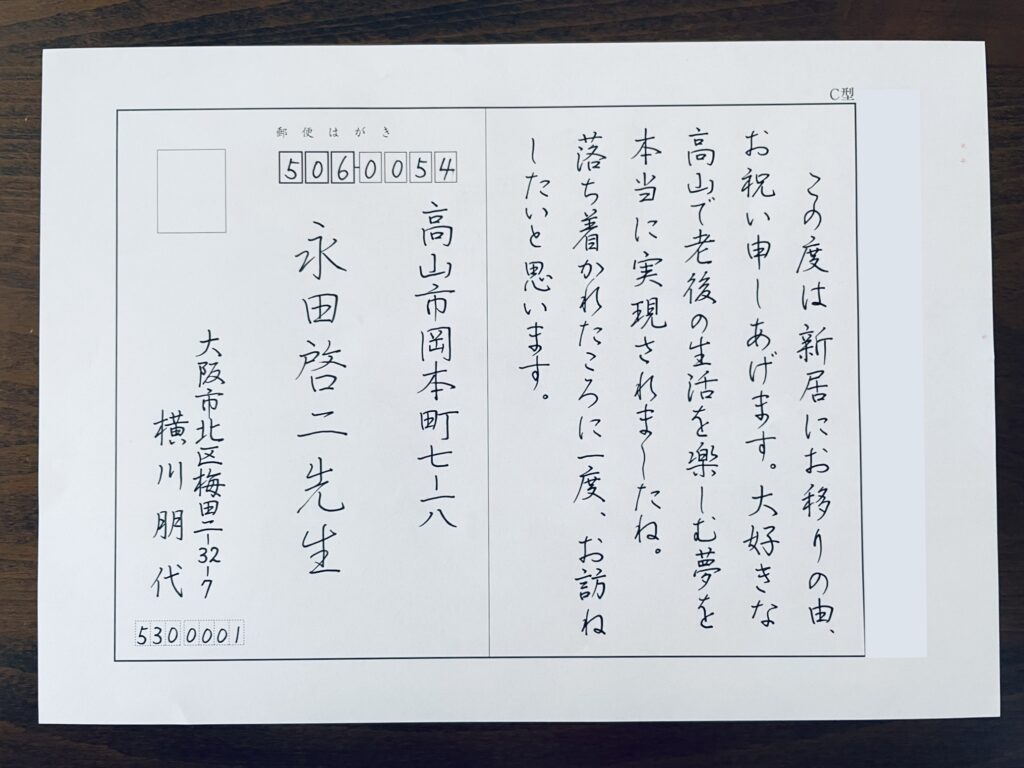 C型
この度は新居にお移りの由、
お祝い申しあげます。大好きな
高山で老後の生活を楽しむ夢を
本当に実現されましたね。
落ち着かれたころに一度、お訪ね
したいと思います。
郵便はがき
506-0054
高山市岡本町七-一八
永田啓二先生
大阪市北区梅田二-32-7
横川朋代
5300001